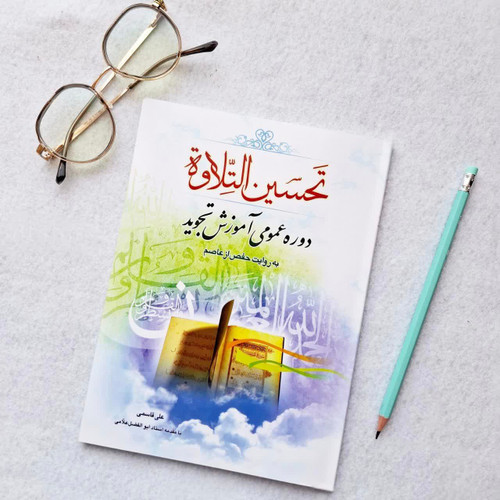 تحسین التِّلاوة
دوره عمومی آموزش تجوید
به روایت حفص از عاصم
علی قاسمی
با مقدمه استاد ابوالفضل علامی